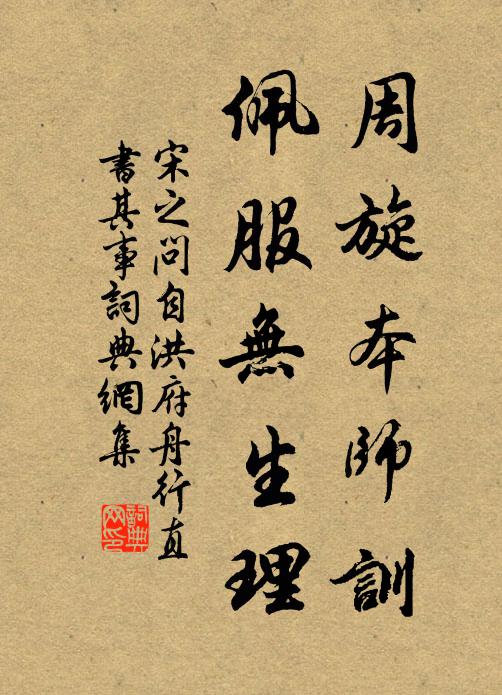 周旋本師訓
佩服無生理
宋之問自洪府舟行直
書其事詞典網集
詞典
网印